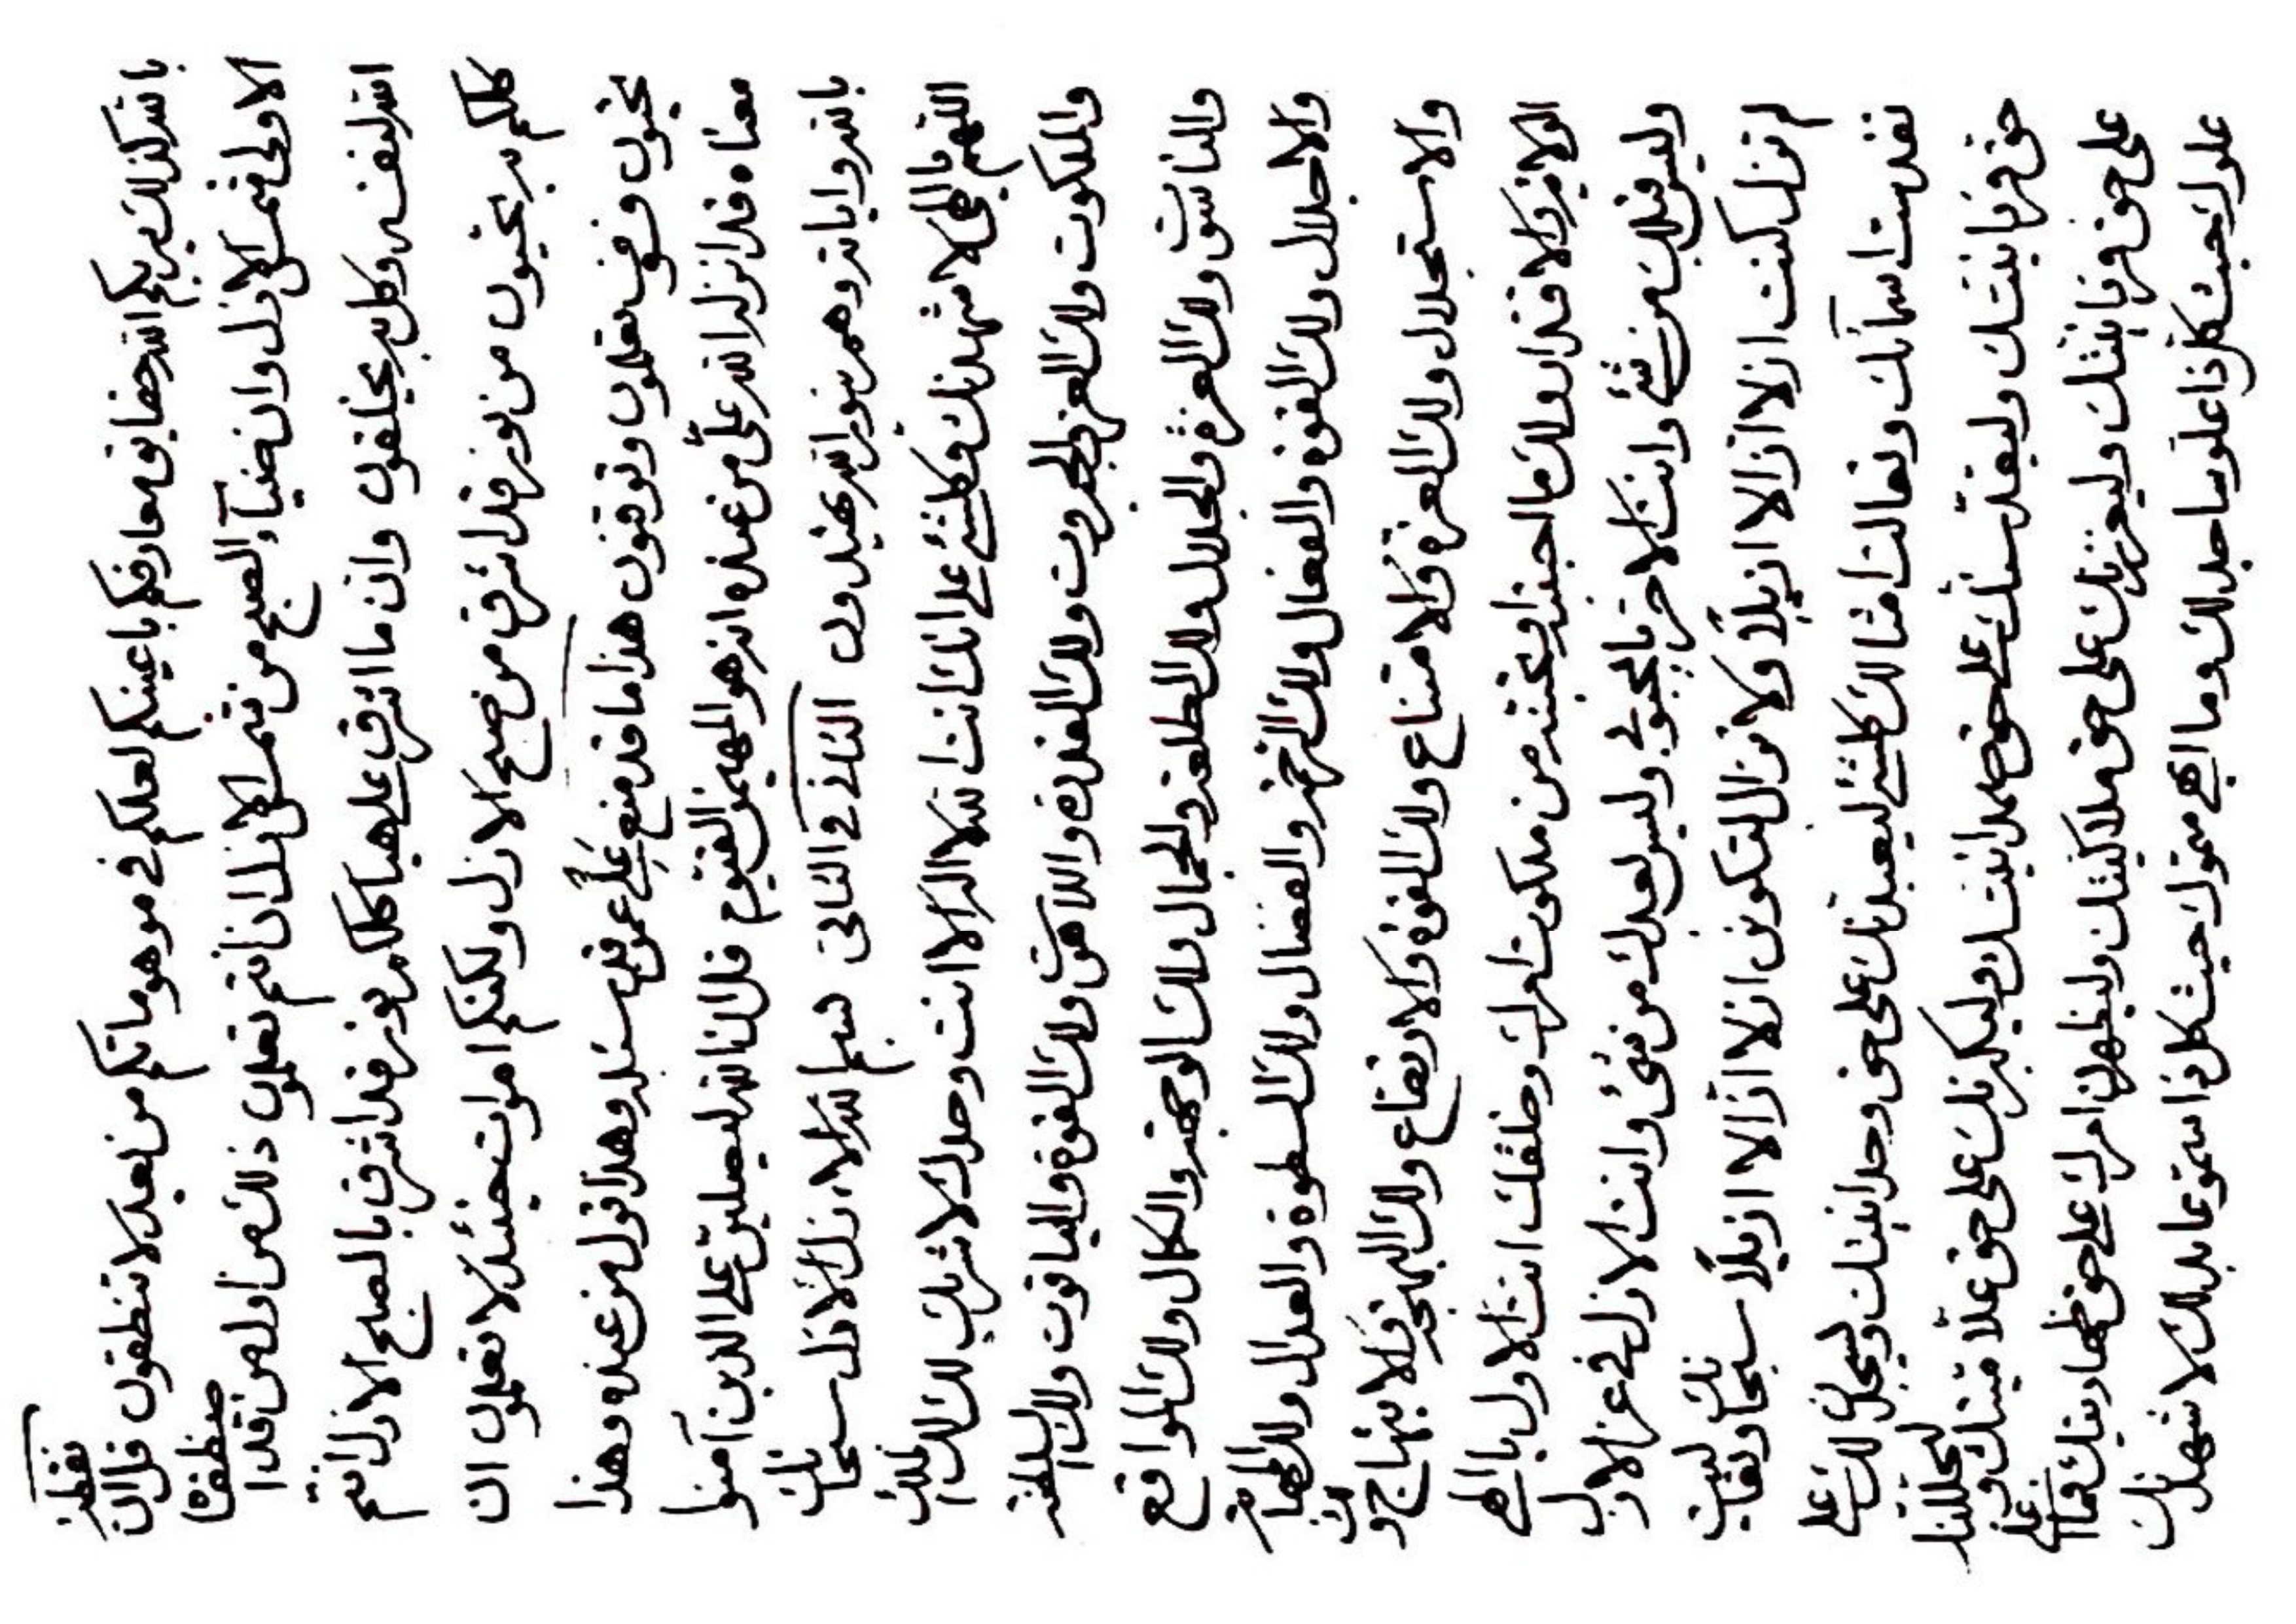 بالله كذلك يريكم الله حقايق معارفكم باعينكم لعلكم في موهوماتكم من بعد لا تنطقون قل ان نقطة
الاولى شمس الازل وان ضيآء الصبح من شمس الازل ان انتم تعلمون ذلك من اوله من قد اصطفاه
الله لنفسه وكل به يخلقون وان ما اشرق على هياكلكم نور قد اشرق بالصبح الازل انتم
كلكم به تحيون من نور قد اشرق من صبح الازل ولكنكم اموات حينئذ لا تعلمون ان
تحبون تعلمون وتوقنون هذا ما قد منع علي عمن قد سئله وهذا قول من عنده وهذا
معناه قد انزله الله علي من عنده انه هو المهيمن القيوم قل انا الله ليصلين على الذين آمنوا
بالله واياته وهم بنور الله يهتدون الثاني في الثاني بسم الله الازل الازل سبحانك
اللهم يا الهي لاشهدنك وكلشئ على انك انت الله لا اله الا انت وحدك لا شريك لك لك الملك
والملكوت ولك العز والجبروت ولك القدرة واللاهوت ولك القوة والياقوت ولك السلطنة
والناسوت ولك العزة والجلال ولك الطلعة والجمال ولك الوجهة والكمال ولك المواقع
والاجلال ولك القوة والفعال ولك الرحمة والفضال ولك السطوة والعدال ولك
والاستجلال ولك العزة والامتناع ولك القوة والارتفاع ولك البهجة والابتهاج ولك
والاقتدار ولك ما احببته او تحبنه من ملكوت امرك وخلقك انت الاول يا الهي
وليس قبلك من شئ وانت الاخر يا محبوبي وليس بعدك من شئ وانت الازل في عز الازل
لم تزل كنت ازلا ازالا ازيلا ولا تزال لتكونن ازلا ازالا ازيلا سبحانك وتعاليت
تقدست اسمآئك وتعالت امثالك كلشئ ليعبدنك على حق وحدانيتك وليسجدن لك على
حق فردانيتك وليقدسنك على حق صمدانيتك وليكبرنك على حق علاميتك وليجللنك على
على حق وليعززنك على حق ملاكيتك وليظهرن امرك على حق ظهاريتك فما اعلى
علوك حيث كل ذا علو ساجد لك وما ابهى سموك حيث كل ذا سمو عابد لك لاشهدنك